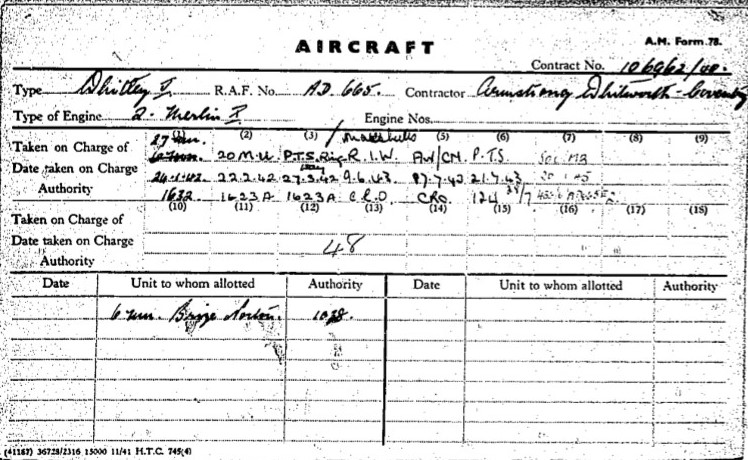 AIRCRAFT
A.M. Form 78.
Contract No. 106962/40.
Type Whitley V. R.A.F. No. AD 665. Contractor Armstrong Whitworth - Coventry
Type of Engine 2. Merlin X Engine Nos.
(1) (2) (3) (5) (6) (7) (8) (9)
27 mu. Marshalls
Taken on Charge of 20 M.U. P.T.S. Rig R.I.W. AW/CN. P.T.S. SOC MB
Date taken on Charge 24.1.42 22.2.42 27.3.42 9.6.43 7.43 21.7.43
Authority 1632. 1623A 1623A C.R.O CRO. 124
(10) (11) (12) (13) (14) (15) (16) (17) (18)
Taken on Charge of
Date taken on Charge 48
Authority
Date Unit to whom allotted Authority Date Unit to whom allotted Authority
6 mu. Brize Norton.
(41187) 36728/2316 15000 11/41 H.T.C. 745(4)